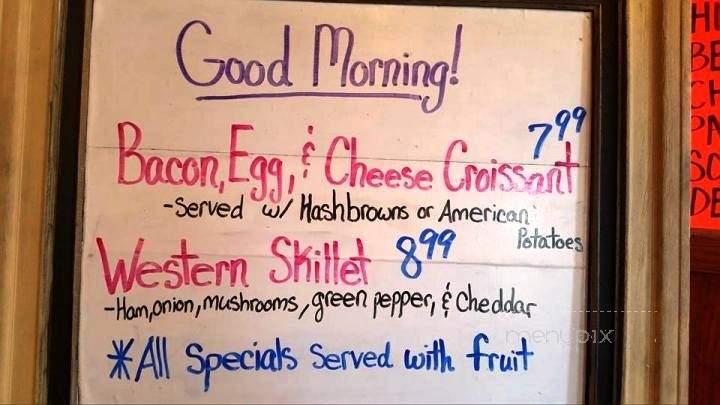 Good Morning!
7.99
Bacon, Egg, & Cheese Croissant
-Served w/ Hashbrowns or American
Potatoes
Western Skillet 8.99
-Ham, onion, mushrooms, green pepper, & Cheddar
*All Specials Served with fruit
menupix